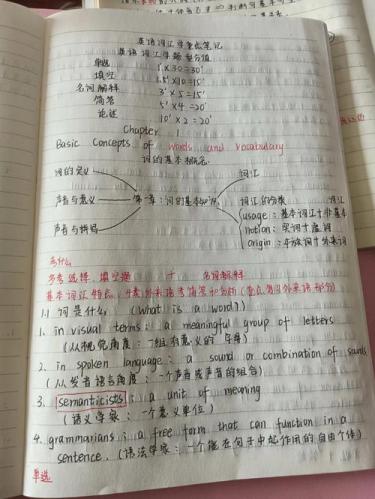 英语词汇学重点笔记
英语词汇学题型分值
单选 1' x 30 = 30'
填空 1.5' x 10 = 15'
名词解释 3' x 5 = 15'
简答 5' x 4 = 20'
论述 10' x 2 = 20'
Chapter 1
Basic Concepts of words and vocabulary
词的基本概念
词的定义
声音与意义
声音与拼写
第一章：词的基本知识
词汇
词汇的分类
usage：基本词汇+非基本
notion：实词+虚词
origin：本族词+外来词
考什么
多考选择、填空题 + 名词解释
1.1 词是什么. (What is a word?)
1. in visual terms: a meaningful group of letters
(从视觉角度：一组有意义的字母)
2. in spoken language: a sound or combination of sounds
(从发者语言角度：一个声音或声音的组合)
3. semanticists: a unit of meaning
(语义学家：一个意义单位)
4. grammarians: a free form that can function in a
sentence. (语法学家：一个能在句子中起作用的自由个体)
单选